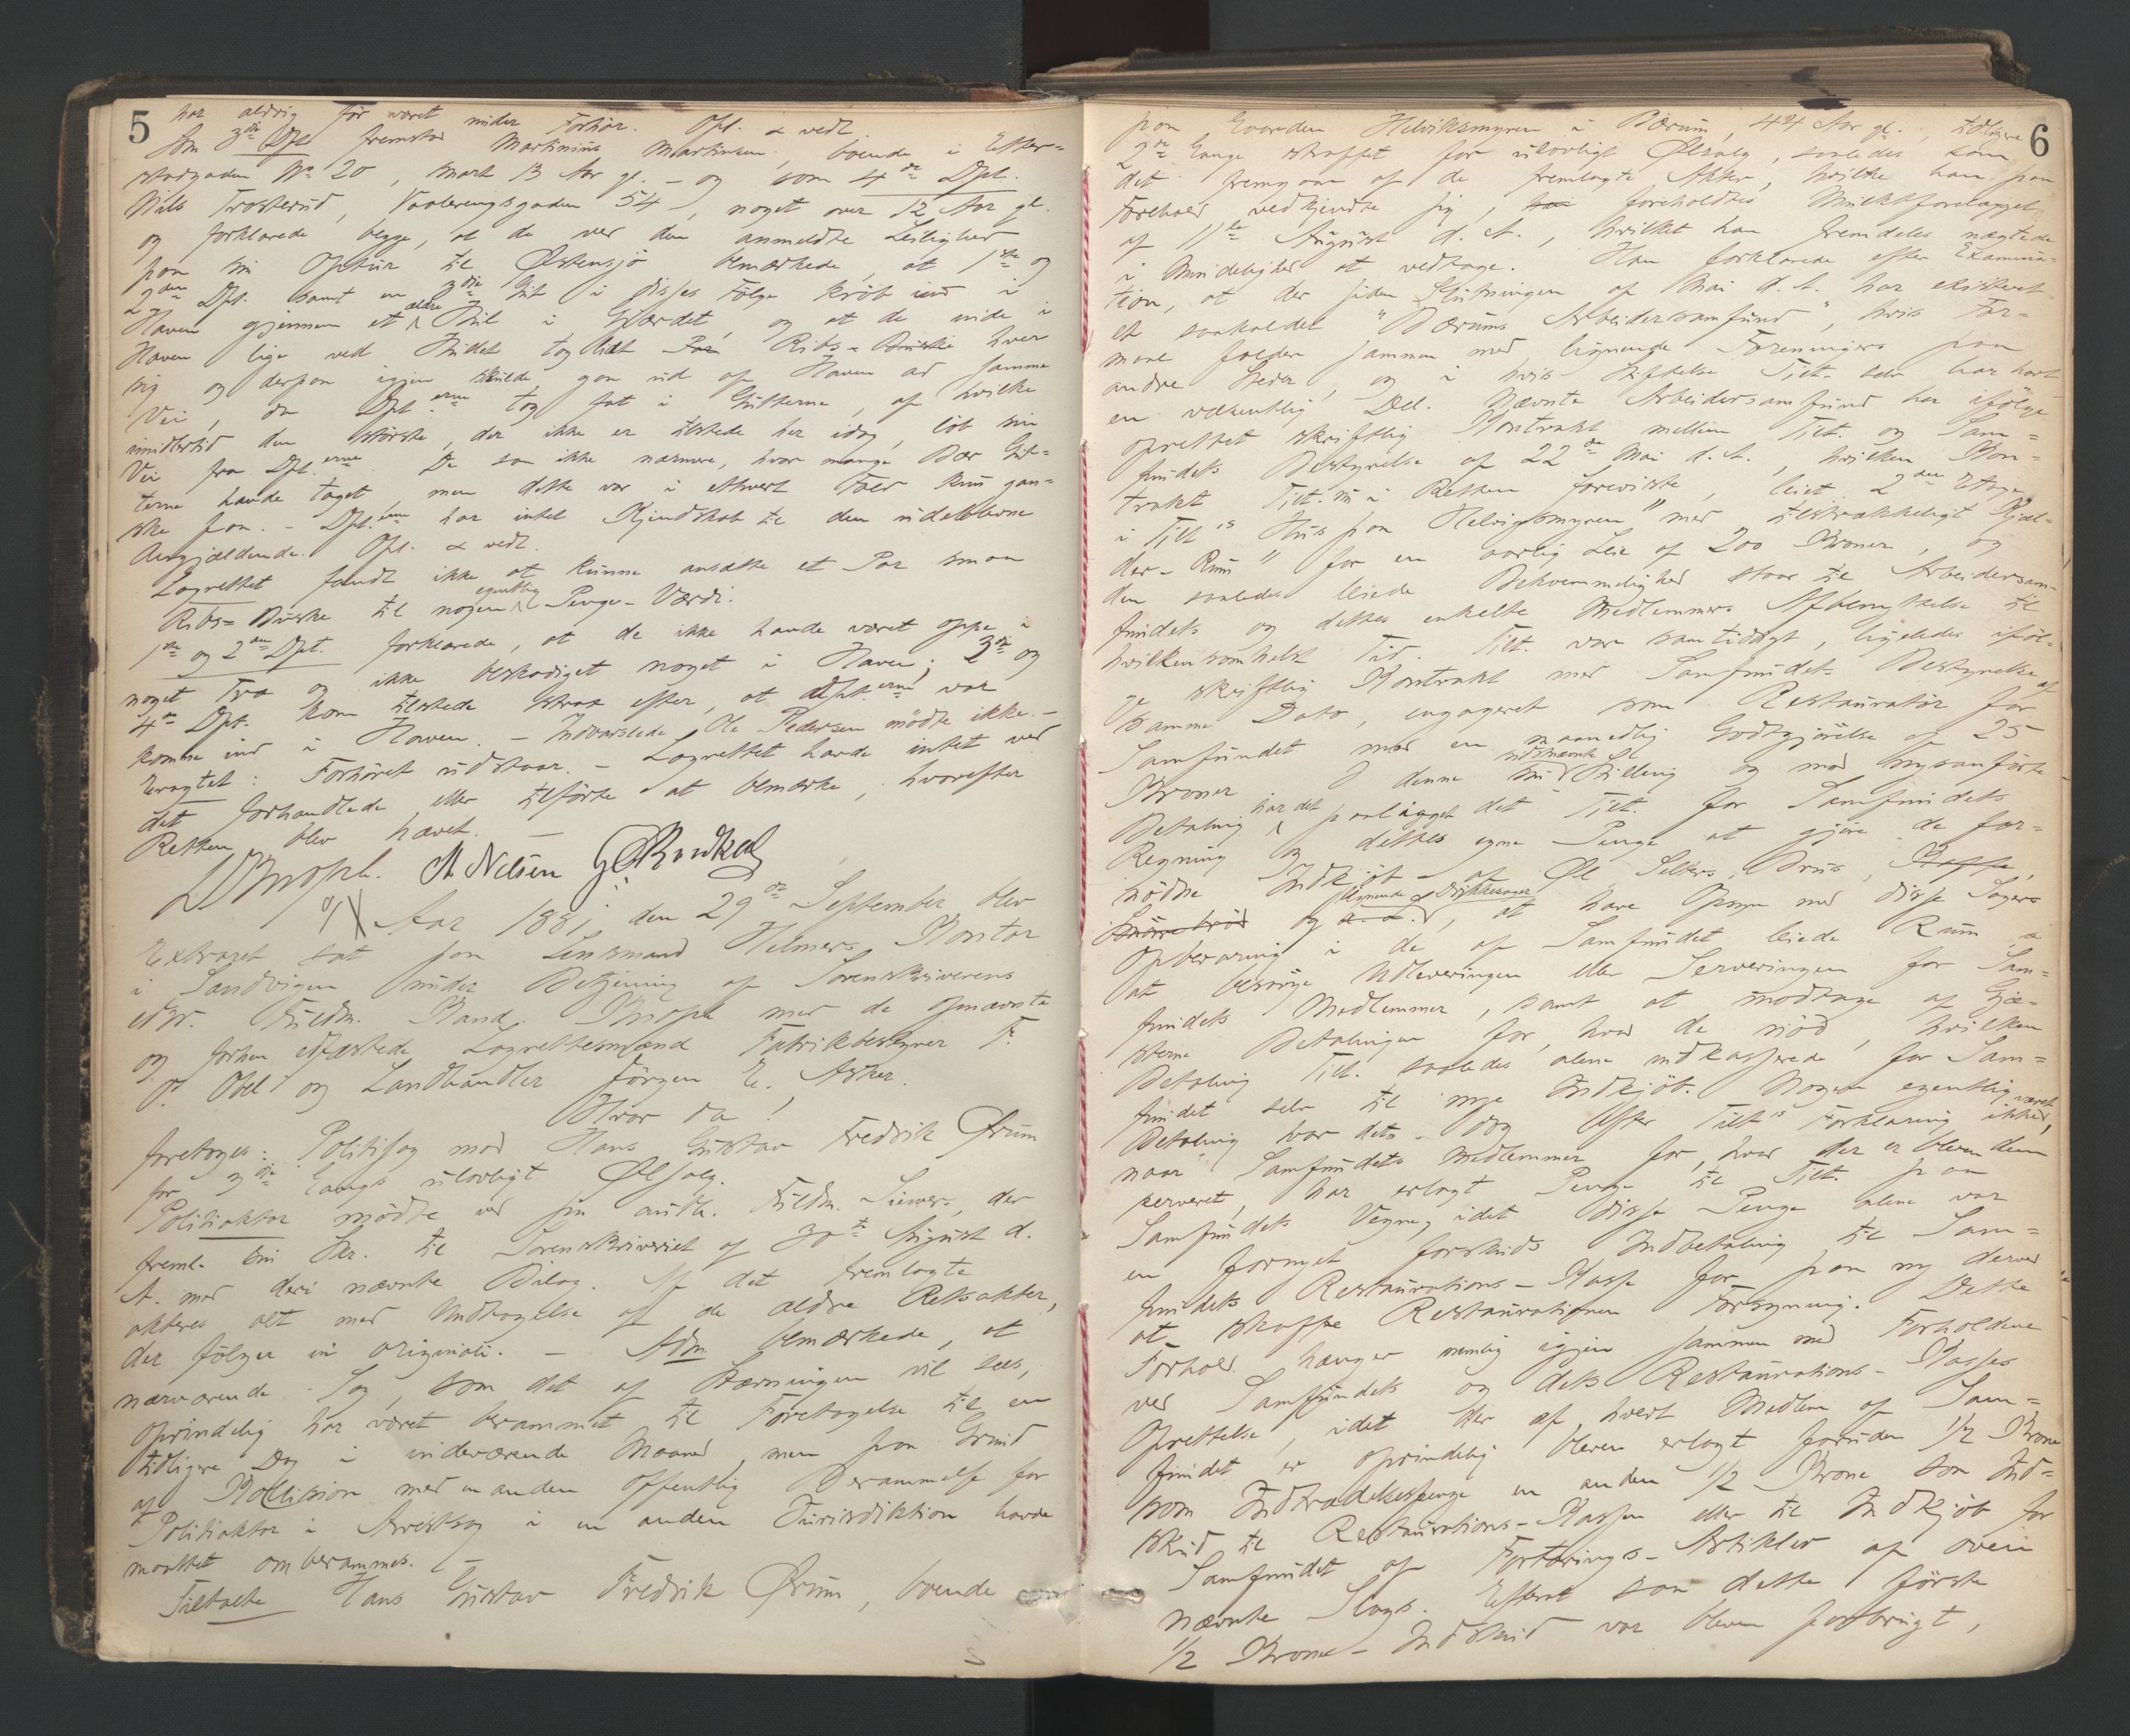 5
har aldrig før været under Forhør. Opl. & vedt.
Som 3die Dpt. fremstod Martinius Martinsen, boende i Efter=
stadgaden No 20, snart 13 Aar gl. – og som 4de Dpt.
Nils Trosterud, Vaalerengsgaden 54, noget over 12 Aar gl.
og forklarede begge, at de ved den anmeldte Leilighed
paa sin Optur til Østensjø bemærkede, at 1ste og
2den Dpt. samt en 3die Gut i disses Følge krøb ind i
Haven gjennem et ældre Hul i Gjærdet, og at de inde i
Haven lige ved Hullet tog lidt Par Ribs-Buske hver
sig og derpaa igjen vilde gaa ud af Haven ad samme
Vei, da Dpt.erne tog fat i Gutterne, af hvilke
imidlertid den største, der ikke er tilstede her idag, løb sin
Vei fra Dpt.erne. De saa ikke nærmere, hvor mange Bær Gut=
terne havde taget, men dette var i ethvert Fald kun gan=
ske faa. – Dpt.erne har intet Kjendskab til den udeblevne
Angjældende. Opl. & vedt.
Lagrettet fandt ikke at kunne ansætte et Par smaa
Ribs=Buske til nogen egentlig Penge-Værdi.
1ste og 2den Dpt. forklarede, at de ikke havde været oppe i
noget Træ og ikke beskadiget noget i Haven; 3die og
4de Dpt. kom tilstede strax efter, at Dpt.erne var
komne ind i Haven. – Indvarslede Ole Pedersen mødte ikke. –
Eragtet: Forhøret udstaar. – Lagrettet havde intet ved
det forhandlede eller tilførte at bemærke, hvorefter
Retten blev hævet. –
Aar 1881, den 29de September blev
Extraret sat paa Lensmand Helmers Kontor
i Sandvigen under Betjening af Sorenskriverens
edsv. Fuldm. Kand. Knoph med de opnævnte
og forhen edfæstede Lagrettesmænd Fabrikbestyrer F.
P. Obel og Landhandler Jørgen E. Asker.
Hvor da!
foretoges: Politisag mod Hans Gustav Fredrik Ørum
for 3die Gangs ulovligt Ølsalg.
Politiaktor mødte ved sin auth. Fuldm. Siewers, der
freml. sin Skr. til Sorenskriveriet af 30te August d.
A. med deri nævnte Bilag. Af det fremlagte
akteres alt med Undtagelse af de ældre Retsakter,
der følger in originali. – Adm bemærkede, at
nærværende Sag, som det af Stævningen vil sees,
oprindelig har været berammet til Foretagelse til en
tidligere Dag i indeværende Maaned, men paa Grund
af Kollision med en anden offentlig Berammelse for
Politiaktor i Arrestsag i en anden Jurisdiktion havde
maattet omberammes. –
Tiltalte Hans Gustav Fredrik Ørum, boende
6
paa Gaarden Helviksmyren i Bærum, 44 Aar gl., tidligere
2de Gange straffet for ulovligt Ølsalg, saaledes som
det fremgaar af de fremlagte Akter, hvilke han paa
Forehold vedkjendte sig, foreholdtes Mulktforelægget
af 11te August d. A., hvilket han fremdeles nægtede
i Mindelighed at vedtage. Han forklarede efter Examina=
tion, at der siden Slutningen af Mai d. A. har existeret
et saakaldet "Bærums Arbeidersamfund", hvis For=
maal falder sammen med lignende Foreninger paa
andre Steder, og i hvis Stiftelse Tilt. selv har havt
en væsentlig Del. Nævnte Arbeidersamfund har ifølge
oprettet skriftlig Kontrakt mellem Tilt. og Sam=
fundets Bestyrelse af 22de Mai d. A., hvilken Kon=
trakt Tilt. nu i Retten foreviste, leiet 2den Etage
i Tilt.s Hus paa Helvigsmyren "med tilstrækkeligt Kjæl=
der-Rum" for en aarlig Leie af 200 Kroner, og
den saaledes leiede Bekvemmelighed staar til Arbeidersam=
fundets og dettes enkelte Medlemmers Afbenyttelse til
hvilkensomhelst Tid. Tilt. var samtidigt, ligeledes iføl=
ge skriftlig Kontrakt med Samfundets Bestyrelse af
samme Dato, engageret som Restauratør for
Samfundet mod en maanedlig Godtgjørelse af 25
Kroner. I denne sidstnævnte Stilling og mod nysanførte
Betaling har det paalagt det Tilt. for Samfundets
Regning og dettes egne Penge at gjøre de for=
nødne Indkjøb af Øl, Selters, Brus, Kaffe,
Smørrebrød og lignende Drikkevarer, at have Opsyn med disse Sagers
Opbevaring i de af Samfundet leiede Rum &
at besørge Udleveringen eller Serveringen for Sam=
fundets Medlemmer, samt at modtage af Gjæ=
sterne Betalingen for, hvad de nød, hvilken
Betaling Tilt. saaledes alene indkasserede for Sam=
fundet selv til nye Indkjøb. Nogen egentlig
Betaling var det dog efter Tilt.s Forklaring ikke været,
naar Samfundets Medlemmer for, hvad der er bleven dem
serveret, har erlagt Penge til Tilt. paa
Samfundets Vegne, idet disse Penge alene var
en fornyet forskuds Indbetaling til Sam=
fundets Restaurations-Kasse for paa ny derved
at skaffe Restaurationen Forsyning. Dette
Forhold hænger nemlig igjen sammen med Forholdene
ved Samfundets og dets Restaurations-Kasses
Oprettelse, idet der af hvert Medlem af Sam=
fundet er oprindelig bleven erlagt foruden 1/2 Krone
som Indtrædelsespenge en anden 1/2 Krone som Ind=
skud til Restaurations-Kassen eller til Indkjøb for
Samfundet af Fortærings-Artikler af oven
nævnte Slags. Efterat saa dette første
1/2 Krone-Indskud var bleven forbrugt,